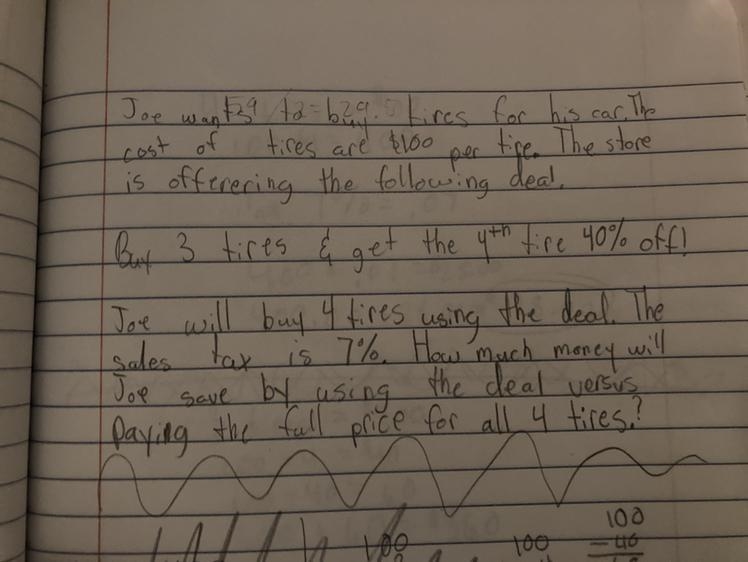 Joe tires for his car. The
cost of tires are $100 per tire. The store
is offerering the following deal.
Buy 3 tires & get the 4th tire 40% off!
Joe will buy 4 tires using the deal. The
sales tax is 7%. How much money will
Joe save by using the deal versus
Paying the full price for all 4 tires.?
100 100 100
-40